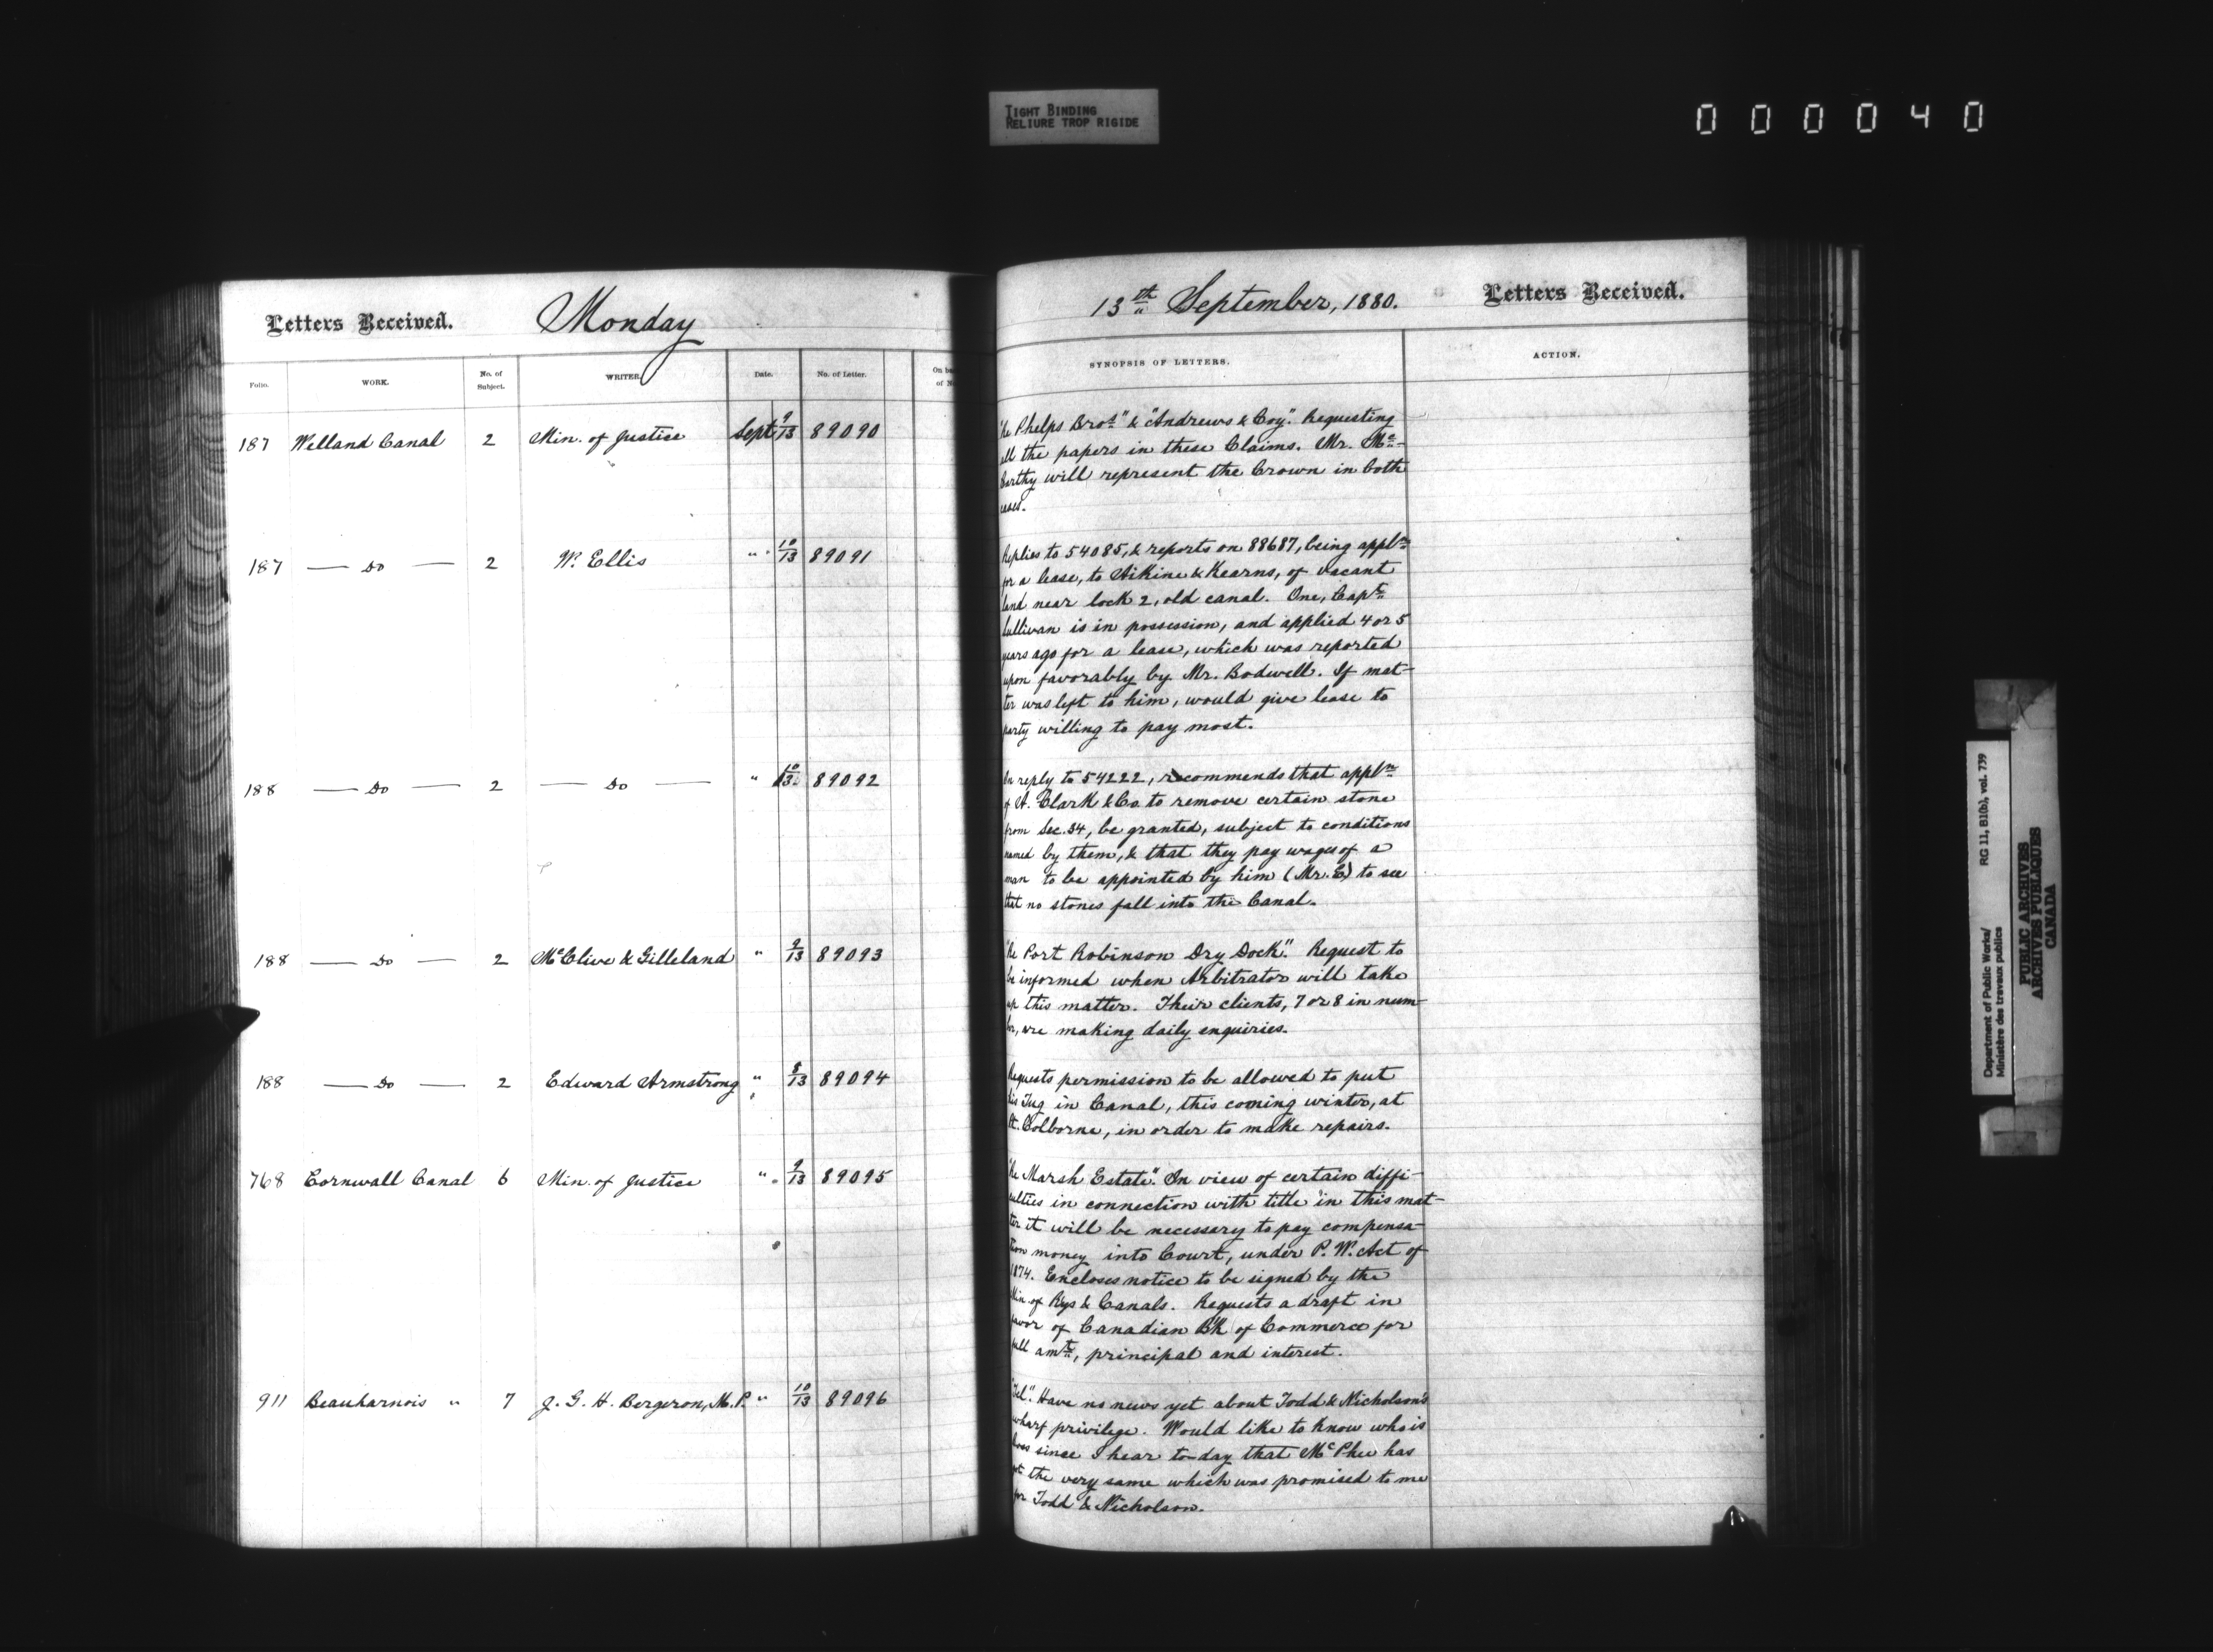 TIGHT BINDING
RELIURE TROP RIGIDE
0 0 0 0 4 0
Letters Received. Monday
Folio. WORK. No. of Subject. WRITER. Date. No. of Letter. On ba
of N
187 Welland Canal 2 Min. of Justice Sept 9/13 89090
187 — Do — 2 W. Ellis " 10/13 89091
188 — Do — 2 — Do — " 10/13 89092
188 — Do — 2 McClive & Gilleland " 9/13 89093
188 — Do — 2 Edward Armstrong " 8/13 89094
768 Cornwall Canal 6 Min. of Justice " 9/13 89095
911 Beauharnois " 7 J. G. H. Bergeron, M.P. " 10/13 89096
13th September, 1880. Letters Received.
SYNOPSIS OF LETTERS. ACTION.
"Re Phelps Bros" & "Andrews & Coy". Requesting
all the papers in these Claims. Mr. Mc-
Carthy will represent the Crown in both
cases.
Replies to 54085, & reports on 88687, being appln
for a lease, to Aikine & Kearns, of vacant
land near lock 2, old canal. One, Capt
Sullivan is in possession, and applied 4 or 5
years ago for a lease, which was reported
upon favorably by Mr. Bodwell. If mat-
ter was left to him, would give lease to
party willing to pay most.
In reply to 54222, recommends that appln
of A. Clark & Co. to remove certain stone
from Sec. 34, be granted, subject to conditions
named by them, & that they pay wages of a
man to be appointed by him (Mr. E.) to see
that no stones fall into the Canal.
"Re Port Robinson Dry Dock". Request to
be informed when Arbitrator will take
up this matter. Their clients, 7 or 8 in num-
ber, are making daily enquiries.
Requests permission to be allowed to put
his Tug in Canal, this coming winter, at
Pt. Colborne, in order to make repairs.
"Re Marsh Estate". In view of certain diffi-
culties in connection with title in this mat-
ter it will be necessary to pay compensa-
tion money into Court, under P. W. Act of
1874. Encloses notice to be signed by the
Min. of Rys & Canals. Requests a draft in
favor of Canadian Bk of Commerce for
full amt, principal and interest.
"Tel". Have no news yet about Todd & Nicholson's
wharf privilege. Would like to know who is
boss since I hear to-day that McPhee has
got the very same which was promised to me
for Todd & Nicholson.
Department of Public Works/ RG 11, B1(b), vol. 739
Ministère des travaux publics
PUBLIC ARCHIVES
ARCHIVES PUBLIQUES
CANADA